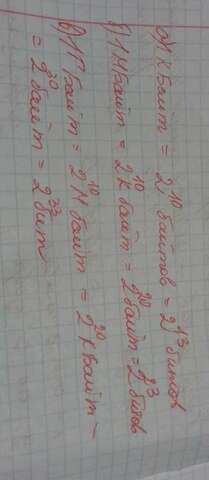 а) 1 Кбайт = 2¹⁰ байтов = 2¹³ битов
б) 1 Мбайт = 2¹⁰ Кбайт = 2²⁰ байт = 2²³ битов
в) 1 Гбайт = 2¹⁰ Мбайт = 2²⁰ Кбайт =
= 2³⁰ байт = 2³³ бит